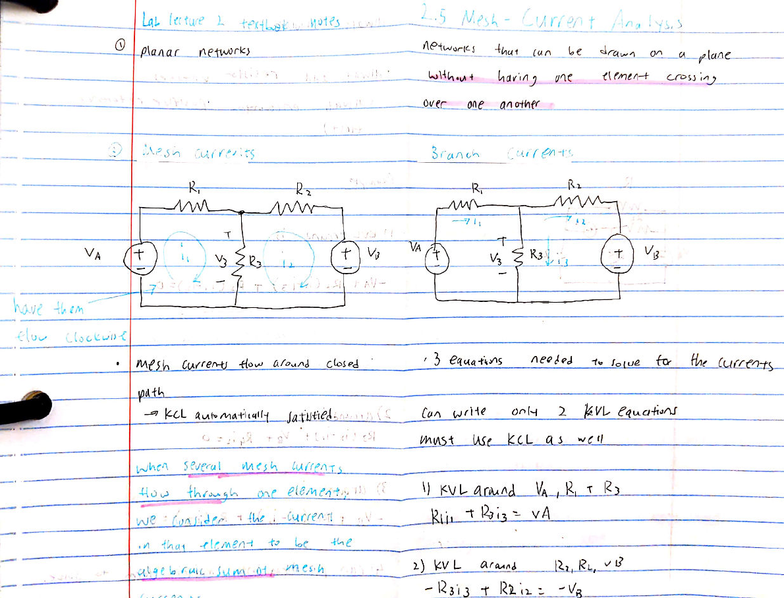 Lab lecture 2 textbook notes
2.5 Mesh-Current Analysis
① planar networks
networks that can be drawn on a plane
without having one element crossing
over one another
② Mesh currents
Branch Currents
R₁ R₂
VA + − i₁ + V₃ − R₃ i₂ + − VB
have them
flow clockwise
R₁ R₂
→ i₁ → i₂
VA + − + V₃ − R₃ ↓ i₃ + − VB
• mesh currents flow around closed
path
→ KCL automatically satisfied
when several mesh currents
flow through one element,
we consider the current
in that element to be the
algebraic sum of mesh
currents
• 3 equations needed to solve for the currents
can write only 2 KVL equations
must use KCL as well
1) KVL around VA, R₁ + R₃
R₁i₁ + R₃i₃ = VA
2) KVL around R₃, R₂, VB
-R₃i₃ + R₂i₂ = -VB